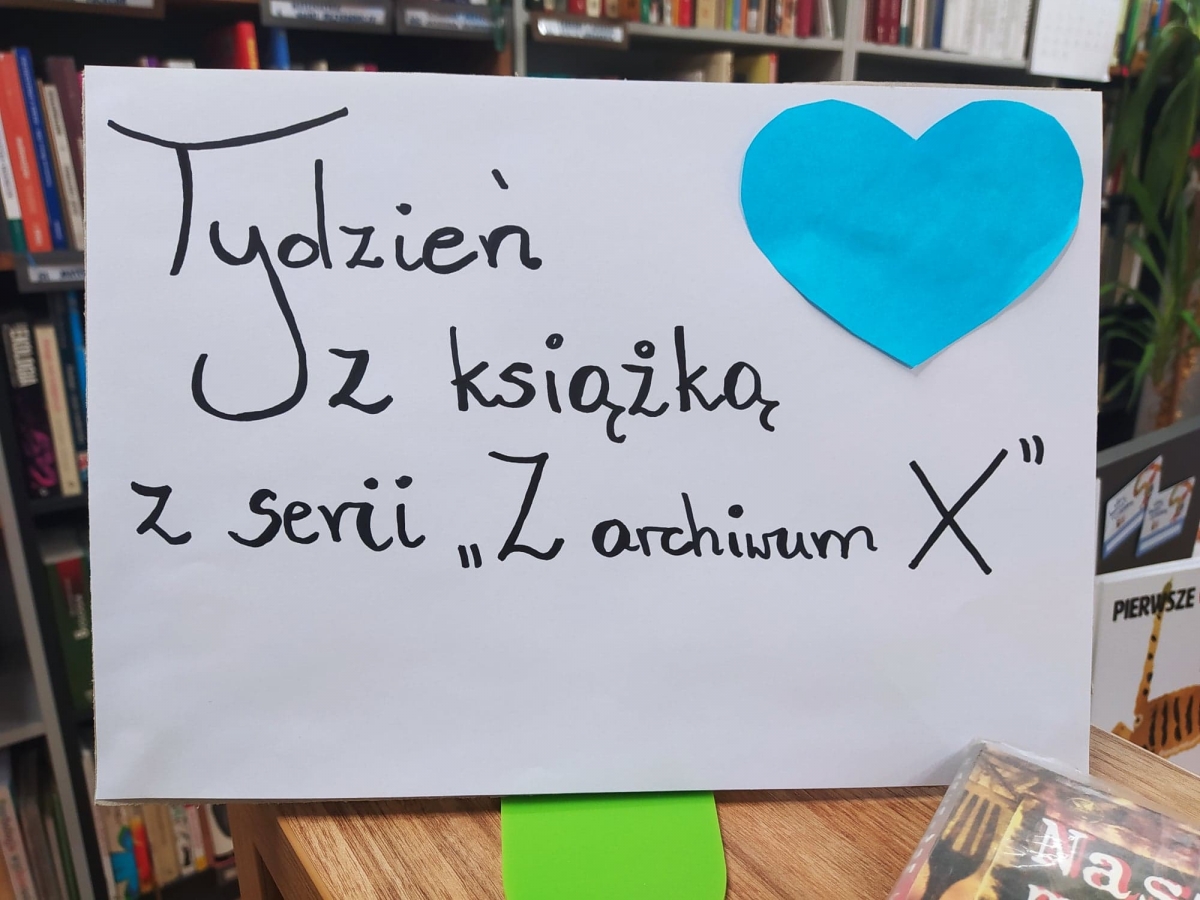 Tydzień
z książką
z serii „Z archiwum X”
PIERWSZE
Nas